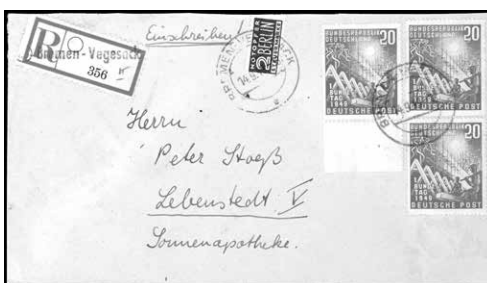 Einschreiben
R
Bremen-Vegesack
356
NOTOPFER
2 BERLIN
STEUERMARKE
BREMEN-VEGESACK
14.9.
BUNDESREPUBLIK
DEUTSCHLAND
20
I.
BUNDES
TAG
1949
DEUTSCHE POST
BUNDESREPUBLIK
DEUTSCHLAND
20
I.
BUNDES
TAG
1949
DEUTSCHE POST
BUNDESREPUBLIK
DEUTSCHLAND
20
I.
BUNDES
TAG
1949
DEUTSCHE POST
Herrn
Peter
Lebenstedt V
Sonnenapotheke.